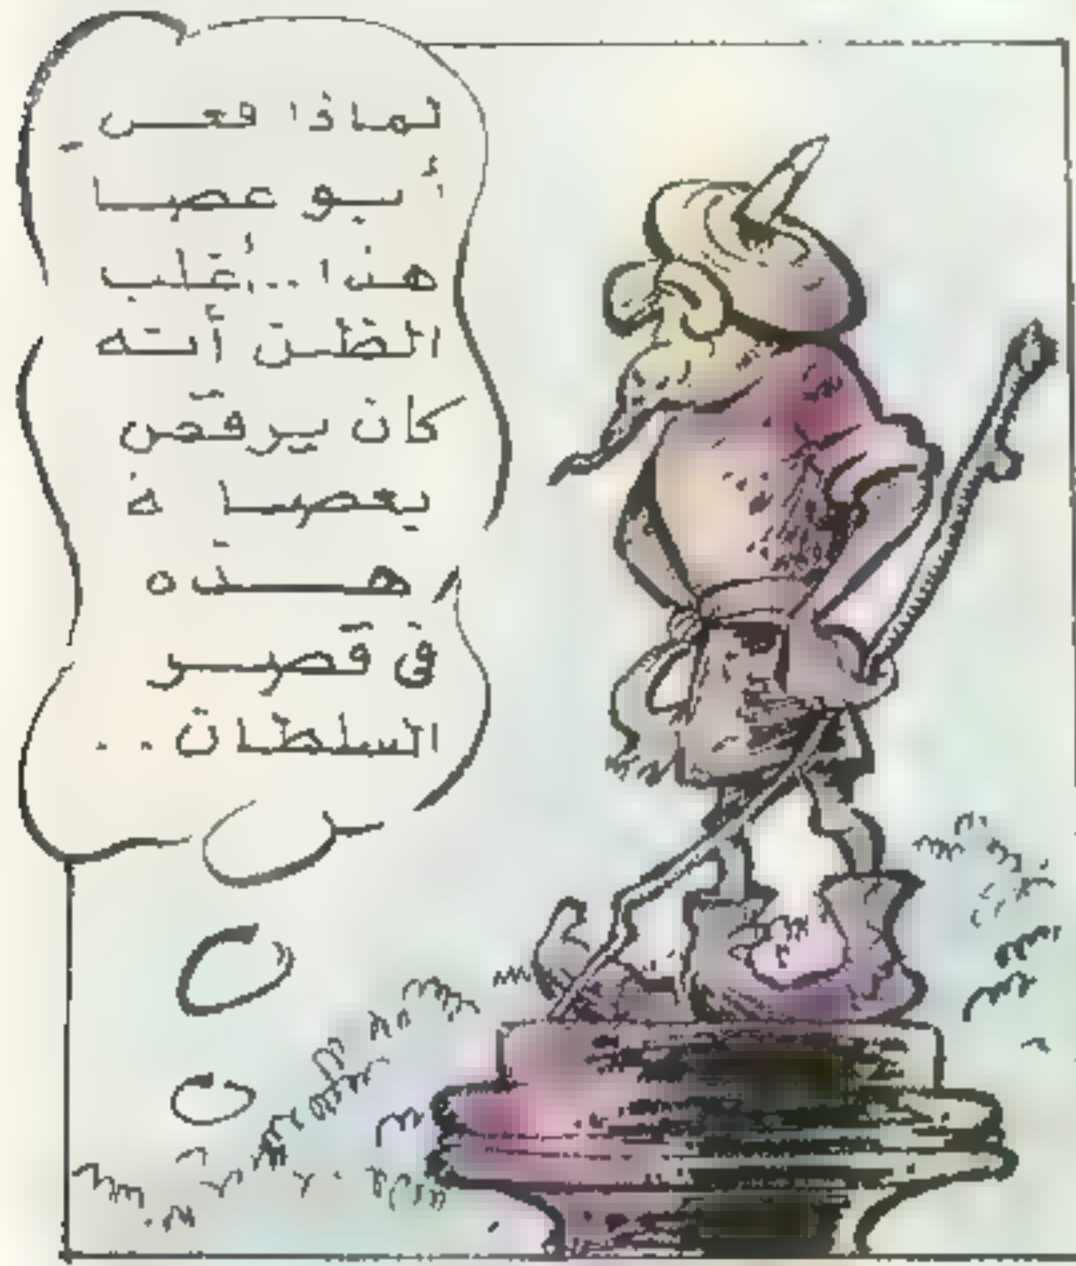 لماذا فعل
أبو عصا
هذا..أغلب
الظن أنه
كان يرقص
بعصا ه
هذه
فى قصر
السلطان..